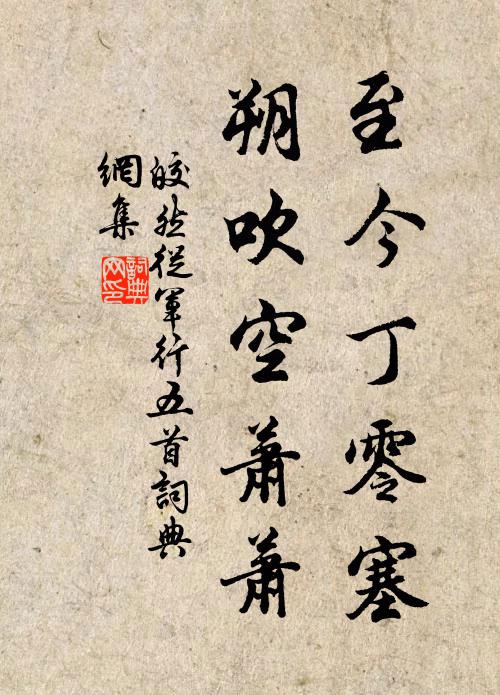 至今丁零塞
朔吹空蕭蕭
皎然從軍行五首詞典
網集
詞典
网印